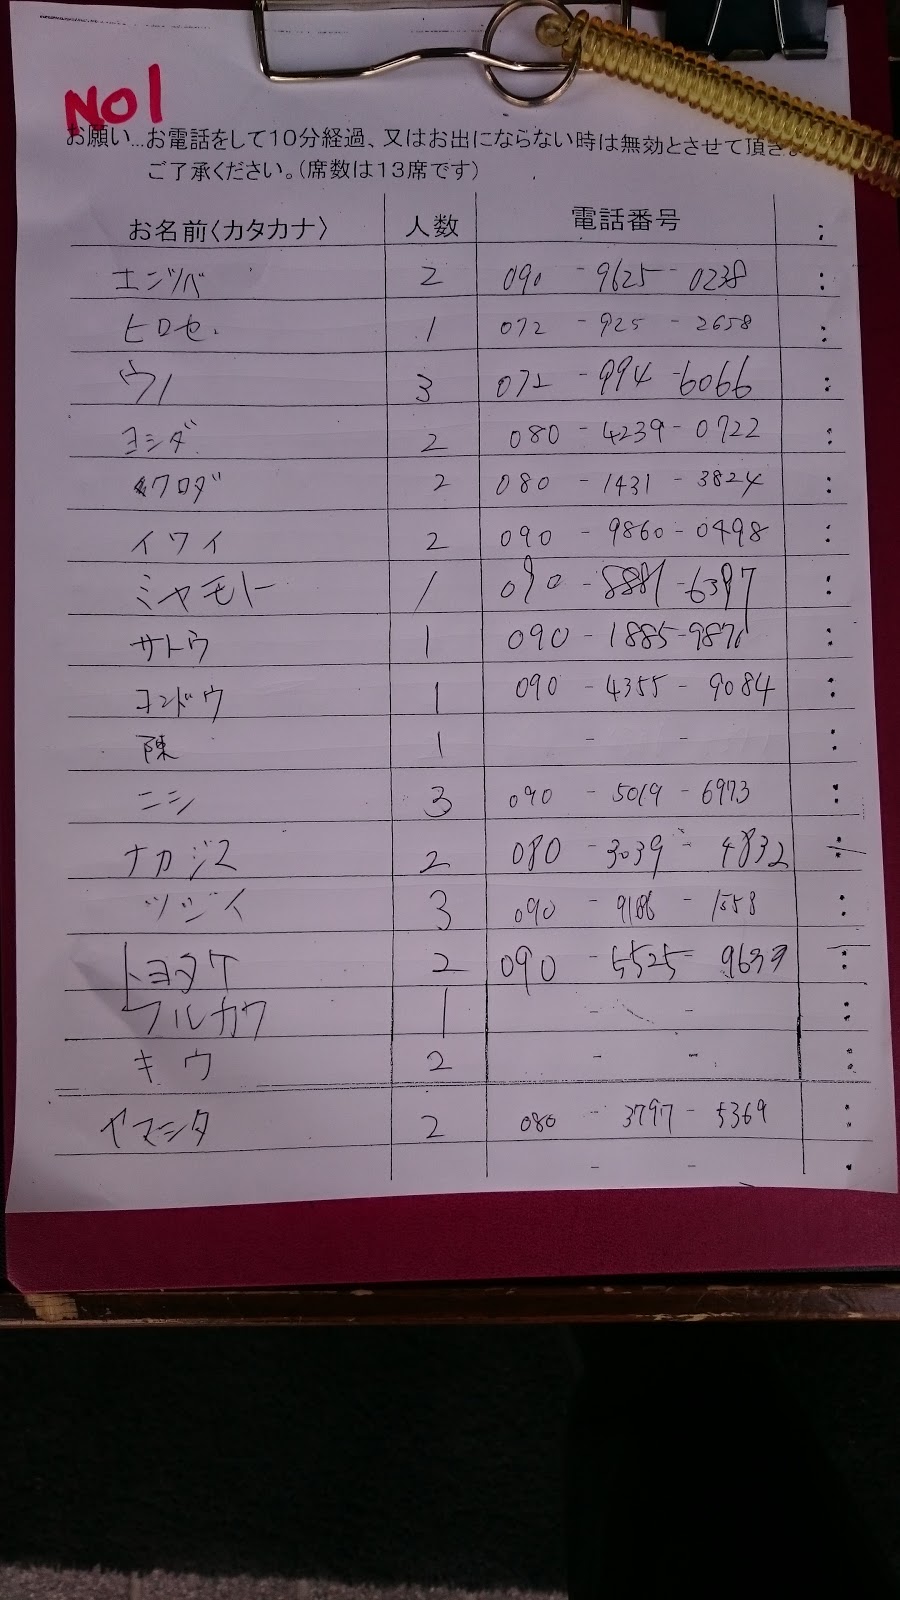 NO1
お願い...お電話をして10分経過、又はお出にならない時は無効とさせて頂きま
ご了承ください。(席数は13席です)
お名前〈カタカナ〉 人数 電話番号 :
2 090 - 9625 - 0238 :
ヒロセ 1 072 - 925 - 2658 :
ウノ 3 072 - 994 - 6066 :
ヨシダ 2 080 - 4239 - 0722 :
クロダ 2 080 - 1431 - 3824 :
イワイ 2 090 - 9860 - 0498 :
ミヤモト 1 090 - - 6397 :
サトウ 1 090 - 1885 - 9876 :
コンドウ 1 090 - 4355 - 9084 :
陳 1 - - :
ニシ 3 090 - 5019 - 6973 :
ナカジマ 2 080 - 3039 - 4832 :
ツジイ 3 090 - 9186 - 1558 :
トヨタケ 2 090 - 5525 - 9633 :
フルカワ 1 - - :
キウ 2 - - :
ヤマシタ 2 080 - 3797 - 5369 :
- -